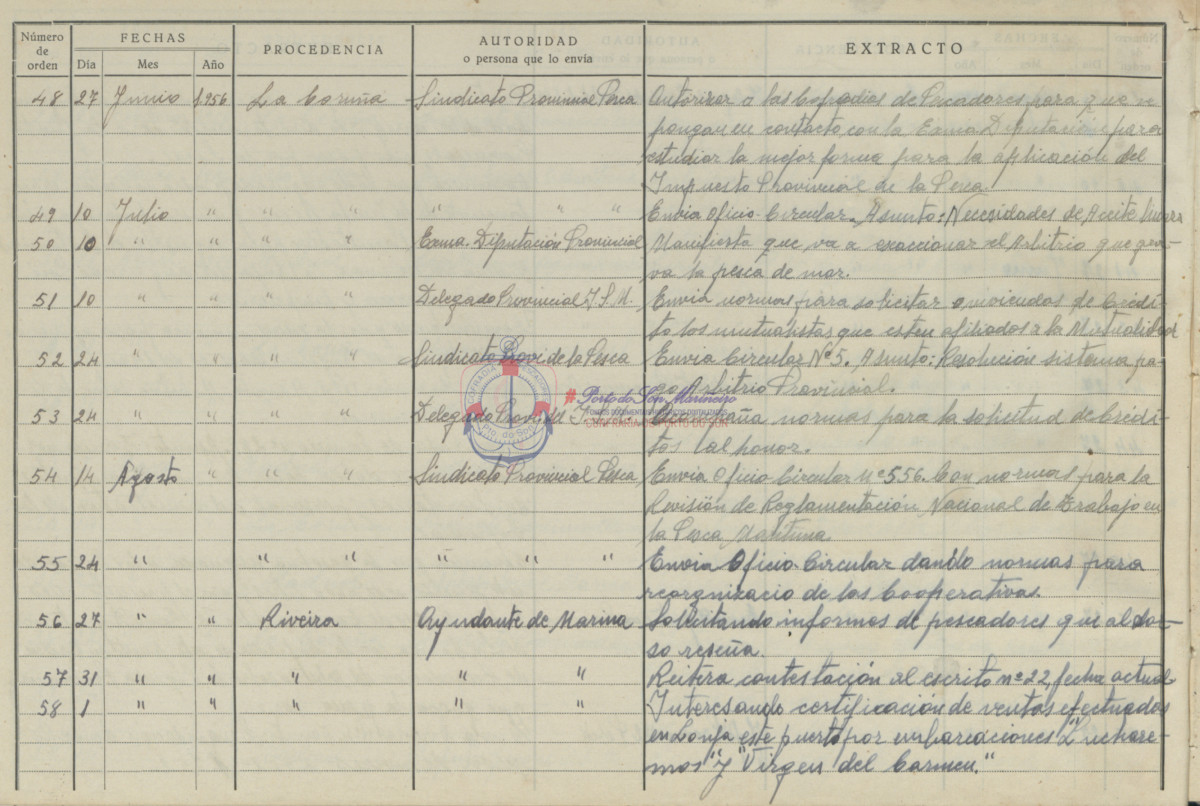 Número de orden FECHAS Día Mes Año PROCEDENCIA AUTORIDAD o persona que lo envía EXTRACTO
48 27 Junio 1.956 La Coruña Sindicato Provincial Pesca Autorizar a las Cofradias de Pescadores para que se
pongan en contacto, con la Exma Diputación para
estudiar la mejor forma para la aplicación del
Impuesto Provincial de la Pesca.
49 10 Julio " " " " " " Envia Oficio-Circular. Asunto: Necesidades de Aceite
50 10 " " " " Exma. Diputación Provincial Manifiesta que va a exaccionar el Arbitrio que gra-
va la pesca de mar.
51 10 " " " " Delegado Provincial I.S.M. Envia normas para solicitar de Crédi-
to los mutualistas que esten afiliados a la Mutualidad
52 24 " " " " Sindicato Provi. de la Pesca Envia Circular Nº 5. Asunto: Resolución sistema pa-
go Arbitrio Provincial.
53 24 " " " " Delegado Prov. del I.S.M. normas para la solicitud de Crédi-
tos al honor.
54 14 Agosto " " " Sindicato Provincial Pesca Envia Oficio Circular nº 556. Con normas para la
Revisión de Reglamentación Nacional de Trabajo en
la Pesca Maritima
55 24 " " " " " " Envia Oficio-Circular dando normas para
reorgnizacio de las Cooperativas.
56 27 " " Riveira Ayudante de Marina Solicitando informos de pescadores que al do-
so reseña.
57 31 " " " " " Reitera contestación al escrito nº 22, fecha actual
58 1 " " " " " Interesando certificación de ventas efectuados
en Lonja este puerto por embarcaciones "Luchare-
mos" y "Virgen del Carmen."
COFRADIA PESCADORES
Pto. do Son
#Porto do Son Marineiro
CONFRARIA DE PORTO DO SON